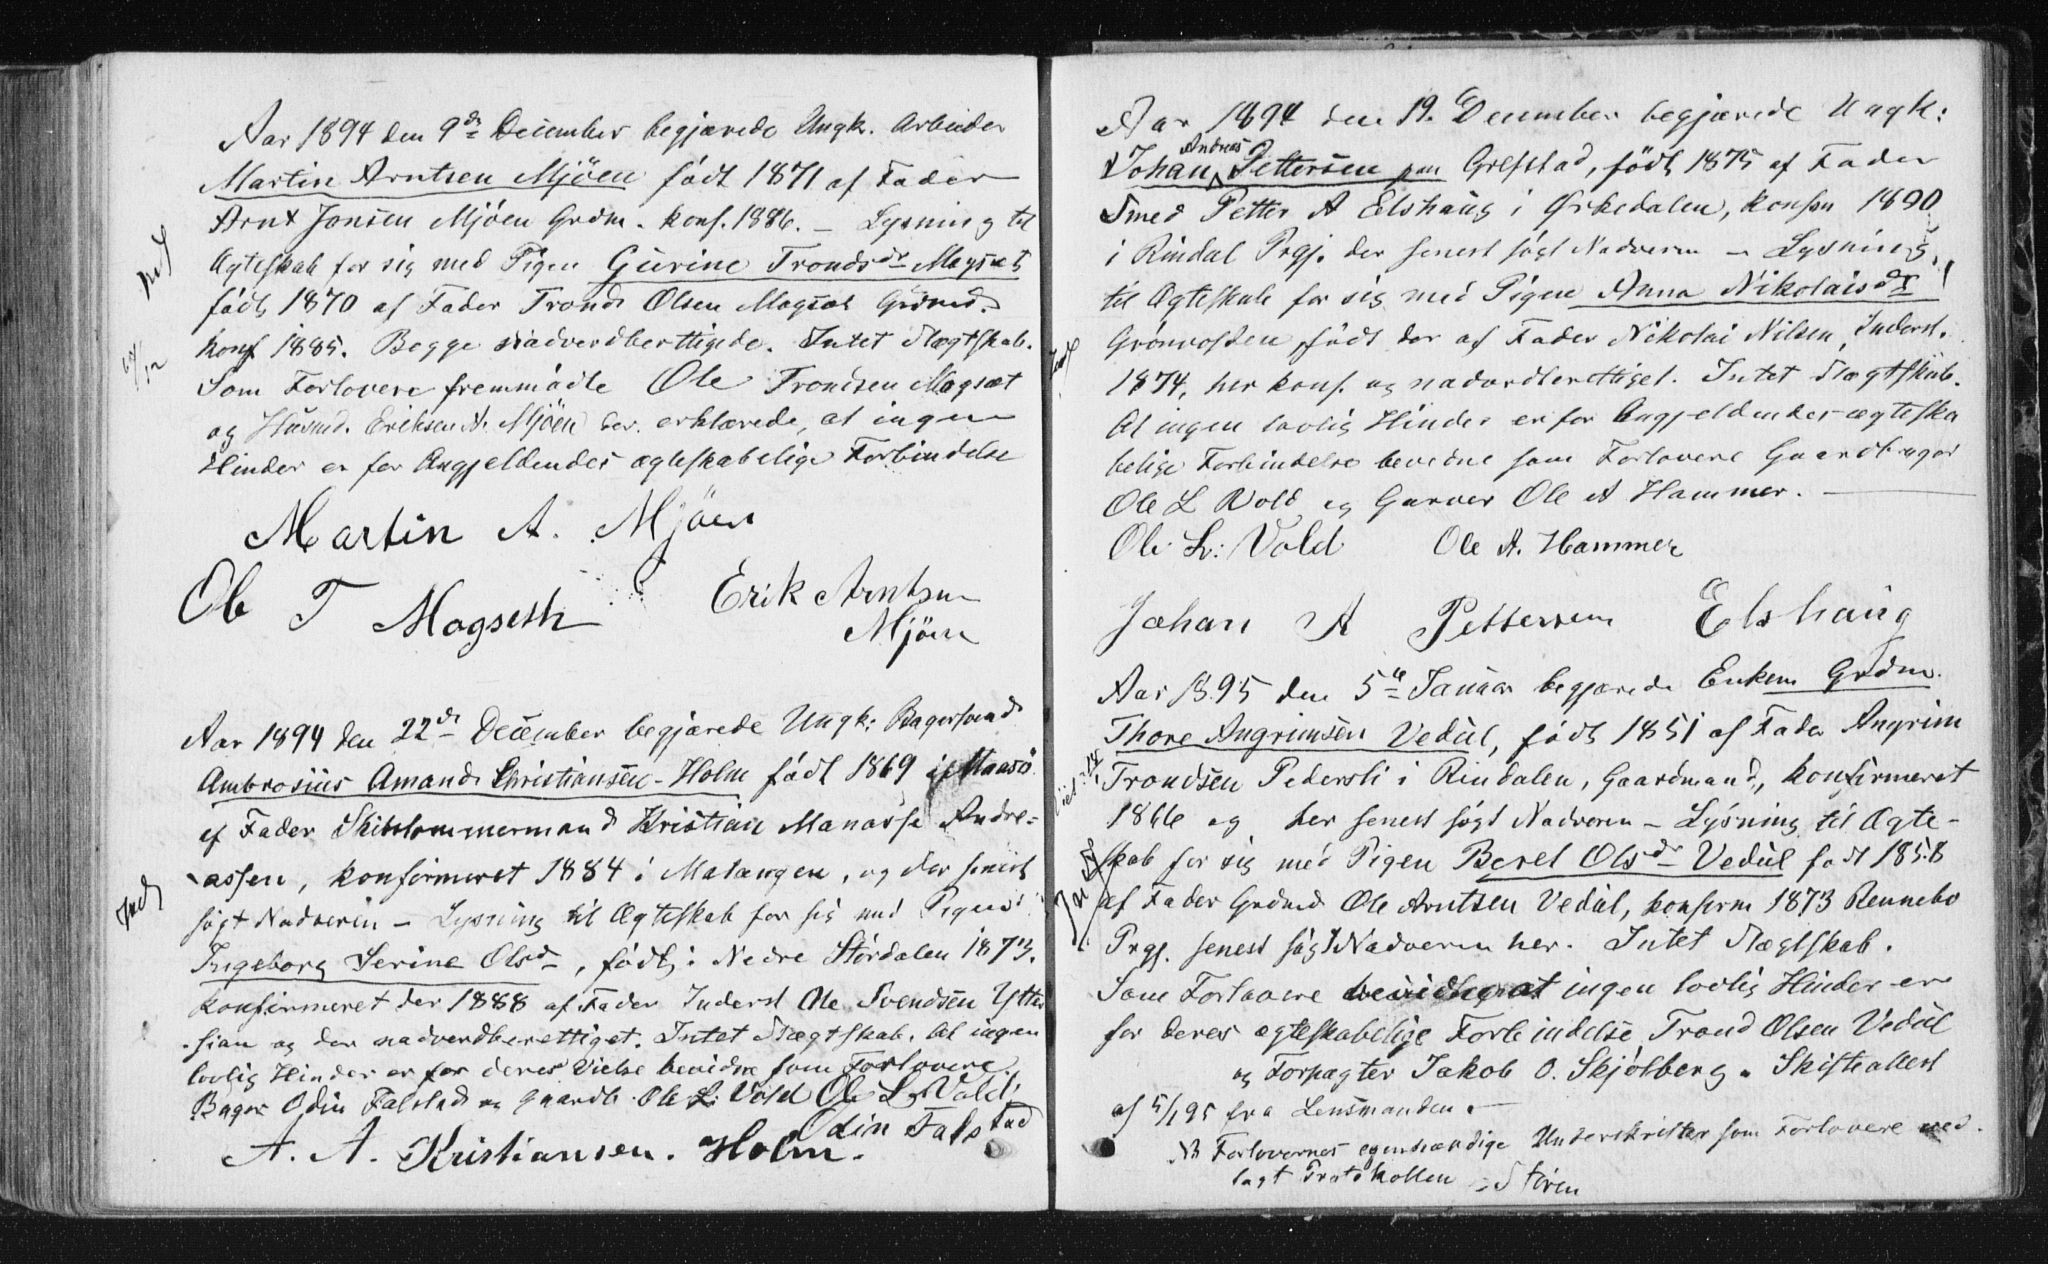 Aar 1894 den 9de December begjærede Ungk. Arbeider
Martin Arntsen Mjöen født 1871 af Fader
Arnt Jonsen Mjöen Grdm. konf. 1886. – Lysning til
Ægteskab for sig med Pigen Gurine Tronds dr Magset
født 1870 af Fader Trond Olsen Magset Grdmd.
konf 1885. Begge nadverdberttigede. Intet Slægtskab.
Som Forlovere fremmødte Ole Trondsen Magsæt
og Husmd. Eriksen A. Mjöen der erklærede, at ingen
Hinder er for Angjeldendes ægteskabelige Forbindelse
Martin A. Mjöen
Ole T Magseth
Erik Arntsen
Mjöen
Aar 1894 den 22de December begjærede Ungk: Bagersvend
Ambrosius Amand Christiansen-Holm født 1869 i Maasö
af Fader Skibstømmermand Kristian Manasse Andre-
assen, konfirmeret 1884 i Malangen, og der senest
søgt Nadveren – Lysning til Ægteskab for sig med Pigen
Ingeborg Serine Olsd, født i Nedre Stördalen 1873,
konfirmeret der 1888 af Fader Inderst Ole Svendsen Ytter
sian og der nadverdberettiget. Intet Slægtskab. At ingen
lovlig Hinder er for deres Vielse bevidne som Forlovere
Bager Odin Falstad og Gaardb. Ole L. Vold Ole L. Vold
Odin Falstad
A. A. Kristiansen. Holm.
Aar 1894 den 19. December begjærede Ungk:
Andreas
Johan Pettersen paa Grefstad, født 1875 af Fader
Smed Petter A Elshaug i Ørkedalen, konfrm 1890
i Rindal Prgj. der senest søgt Nadveren – Lysning
til Ægteskab for sig med Pigen Anna Nikolaisdr
Grönvosten født der af Fader Nikolai Nilsen, Inderst.
1874, her konf. og nadverdberettiget. Intet Slægtskab.
At ingen lovlig Hinder er for Angjeldendes ægteska
belige Forbindelse bevidne som Forlovere Gaardbruger
Ole L Vold og Garver Ole A Hammer.
Ole L: Vold Ole A. Hammer
Johan A Pettersen Elshaug
Aar 1895 den 5te Januar begjærede Enkem Grdm.
Thore Angrimsen Vedul, født 1851 af Fader Angrim
Trondsen Pedersli i Rindalen, Gaardmand, konfirmeret
1866 og her senest søgt Nadveren – Lysning til Ægte-
skab for sig med Pigen Beret Olsdr Vedul født 1858
af Fader Grdmd Ole Arntsen Vedul, konfirm 1873 Rennebo
Prgj. senest søgt Nadveren her. Intet Slægtskab.
Som Forlovere bevidner at ingen lovlig Hinder er
for deres ægteskabelige Forbindelse Trond Olsen Vedul
og Forpagter Jakob O. Skjölberg. Skifteattest
af 5/1 95 fra Lensmanden.
NB Forlovernes egenhændige Underskrifter som Forlovere ved-
lagt Protokollen Støren